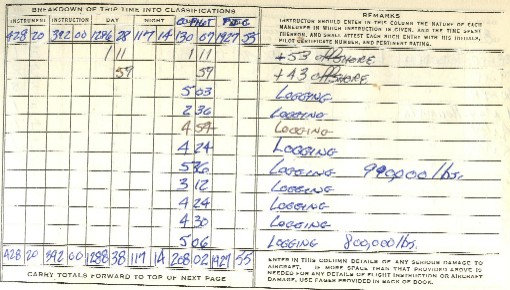 BREAKDOWN OF THIS TIME INTO CLASSIFICATIONS REMARKS
INSTRUMENT INSTRUCTION DAY NIGHT
INSTRUCTOR SHOULD ENTER IN THIS COLUMN THE NATURE OF EACH
MANEUVER IN WHICH INSTRUCTION IS GIVEN, AND THE TIME SPENT
THEREON, AND SHALL ATTEST EACH SUCH ENTRY WITH HIS INITIALS,
PILOT CERTIFICATE NUMBER, AND PERTINENT RATING.
428 20 392 00 1286 28 117 14 130 07 1927 55
1 11 1 11 +53 offSHORE
59 59 +43 offSHORE
5 03 LOGGING
2 36 LOGGING
4 59 LOGGING
4 24 LOGGING
5 36 LOGGING 990,000 lbs.
3 12 LOGGING
4 24 LOGGING
4 30 LOGGING
5 06 LOGGING 800,000 lbs.
428 20 392 00 1288 38 117 14 268 02 1927 55
ENTER IN THIS COLUMN DETAILS OF ANY SERIOUS DAMAGE TO
AIRCRAFT. IF MORE SPACE THAN THAT PROVIDED ABOVE IS
NEEDED FOR ANY DETAILS OF FLIGHT INSTRUCTION OR AIRCRAFT
DAMAGE, USE PAGES PROVIDED IN BACK OF BOOK.
CARRY TOTALS FORWARD TO TOP OF NEXT PAGE